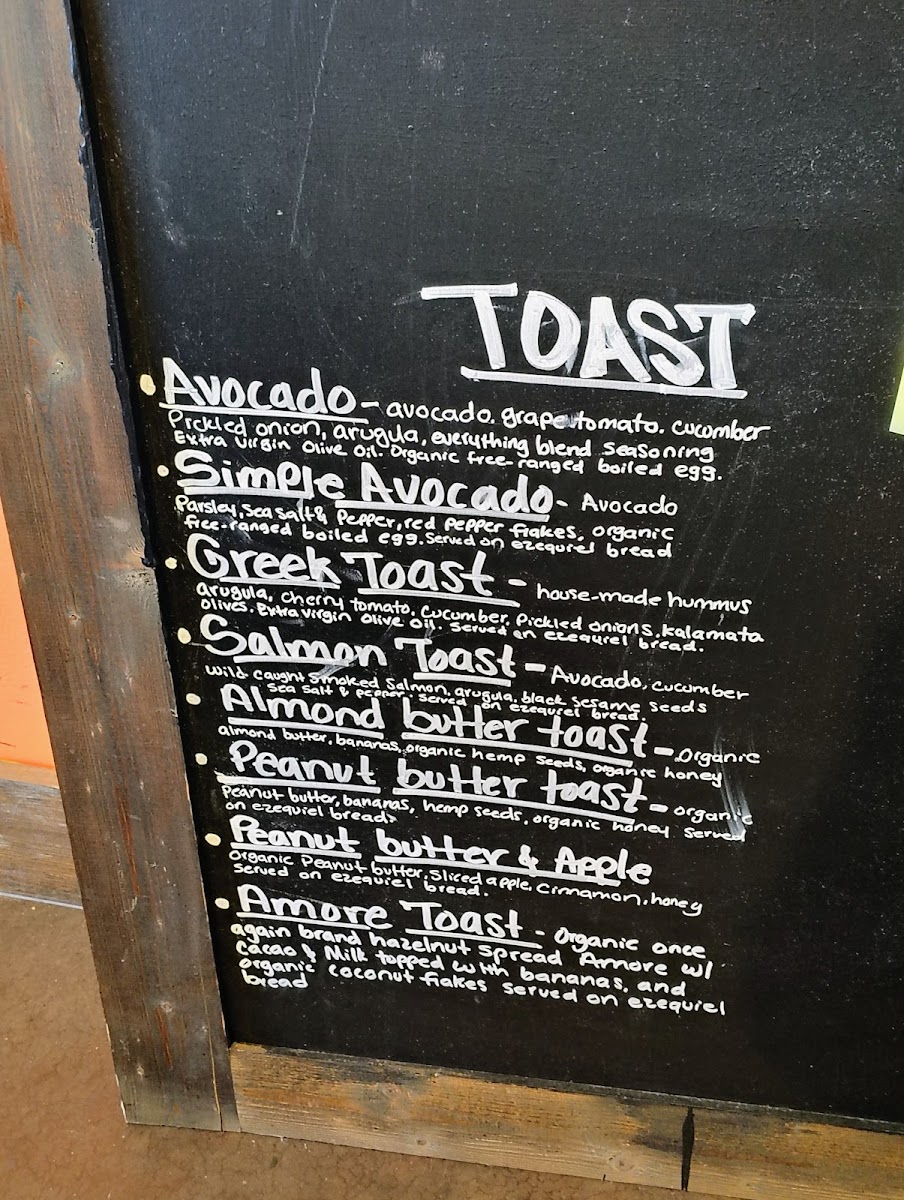 TOAST
Avocado - avocado. grape tomato. cucumber
Pickled onion, arugula, everything blend seasoning
Extra virgin olive oil. Organic free-ranged boiled egg.
Simple Avocado - Avocado
Parsley, sea salt & pepper, red pepper flakes, organic
free-ranged boiled egg. Served on ezequiel bread
Greek Toast - house-made hummus
arugula, cherry tomato. cucumber. Pickled onions, kalamata
olives. Extra virgin olive oil. Served on ezequiel bread.
Salmon Toast - Avocado, cucumber
Wild caught smoked salmon, arugula, black sesame seeds
sea salt & pepper. served on ezequiel bread.
Almond butter toast - organic
almond butter, bananas, organic hemp seeds, organic honey
Peanut butter toast - organic
Peanut butter, bananas, hemp seeds, organic honey served
on ezequiel bread>
Peanut butter & Apple
Organic Peanut butter, sliced apple, cinnamon, honey
Served on ezequiel bread.
Amore Toast - Organic once
again brand hazelnut spread Amore w/
cacao & Milk topped with bananas, and
organic coconut flakes served on ezequiel
bread